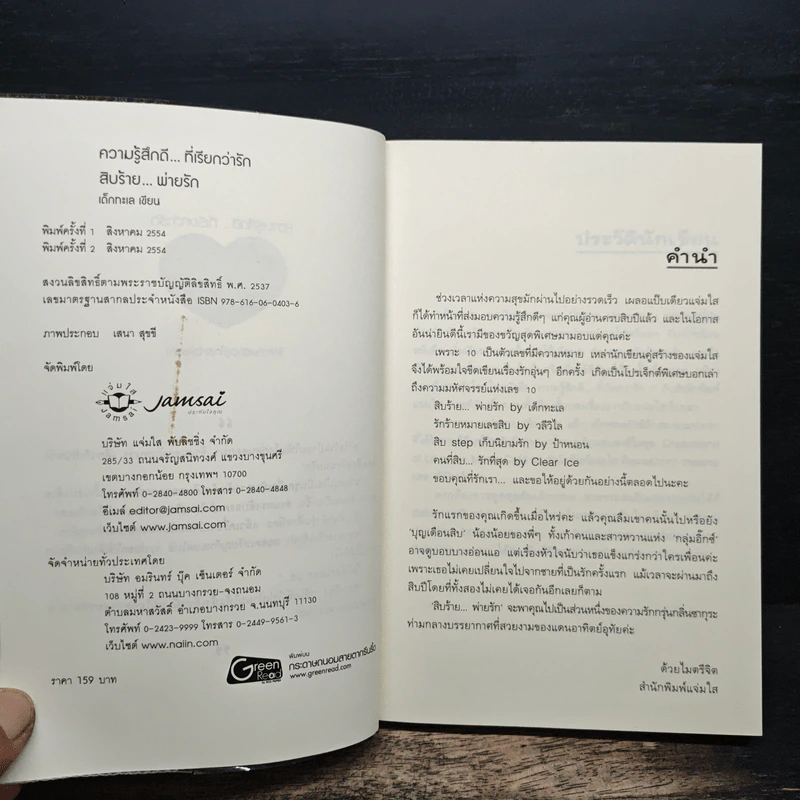 ความรู้สึกดี... ที่เรียกว่ารัก
สิบร้าย... พ่ายรัก
เด็กทะเล เขียน
พิมพ์ครั้งที่ 1 สิงหาคม 2554
พิมพ์ครั้งที่ 2 สิงหาคม 2554
สงวนลิขสิทธิ์ตามพระราชบัญญัติลิขสิทธิ์ พ.ศ. 2537
เลขมาตรฐานสากลประจำหนังสือ ISBN 978-616-06-0403-6
ภาพประกอบ เสนา สุขขี
จัดพิมพ์โดย
แจ่มใส
Jamsai
Jamsai
บริษัท แจ่มใส พับลิชชิ่ง จำกัด
285/33 ถนนจรัญสนิทวงศ์ แขวงบางขุนศรี
เขตบางกอกน้อย กรุงเทพฯ 10700
โทรศัพท์ 0-2840-4800 โทรสาร 0-2840-4848
อีเมล์ editor@jamsai.com
เว็บไซต์ www.jamsai.com
จัดจำหน่ายทั่วประเทศโดย
บริษัท อมรินทร์ บุ๊ค เซ็นเตอร์ จำกัด
108 หมู่ที่ 2 ถนนบางกรวย-จงถนอม
ตำบลมหาสวัสดิ์ อำเภอบางกรวย จ.นนทบุรี 11130
โทรศัพท์ 0-2423-9999 โทรสาร 0-2449-9561-3
เว็บไซต์ www.naiin.com
ราคา 159 บาท
Green Read
พิมพ์บน
กระดาษถนอมสายตากรีนรี้ด
www.greenread.com
คำนำ
ช่วงเวลาแห่งความสุขมักผ่านไปอย่างรวดเร็ว เผลอแป๊บเดียวแจ่มใส
ก็ได้ทำหน้าที่ส่งมอบความรู้สึกดีๆ แก่คุณผู้อ่านครบสิบปีแล้ว และในโอกาส
อันน่ายินดีนี้เรามีของขวัญสุดพิเศษมามอบแด่คุณค่ะ
เพราะ 10 เป็นตัวเลขที่มีความหมาย เหล่านักเขียนคู่สร้างของแจ่มใส
จึงได้พร้อมใจขีดเขียนเรื่องรักอุ่นๆ อีกครั้ง เกิดเป็นโปรเจ็กต์พิเศษบอกเล่า
ถึงความมหัศจรรย์แห่งเลข 10
สิบร้าย... พ่ายรัก by เด็กทะเล
รักร้ายหมายเลขสิบ by วลีวิไล
สิบ step เก็บนิยามรัก by ป้าหนอน
คนที่สิบ... รักที่สุด by Clear Ice
ขอบคุณที่รักเรา... และขอให้อยู่ด้วยกันอย่างนี้ตลอดไปนะคะ
รักแรกของคุณเกิดขึ้นเมื่อไหร่คะ แล้วคุณลืมเขาคนนั้นไปหรือยัง
'บุญเดือนสิบ' น้องน้อยของพี่ๆ ทั้งเก้าคนและสาวหวานแห่ง 'กลุ่มอิ๊กซ์'
อาจดูบอบบางอ่อนแอ แต่เรื่องหัวใจนับว่าเธอแข็งแกร่งกว่าใครเพื่อนค่ะ
เพราะเธอไม่เคยเปลี่ยนใจไปจากชายที่เป็นรักครั้งแรก แม้เวลาจะผ่านมาถึง
สิบปีโดยที่ทั้งสองไม่เคยได้เจอกันอีกเลยก็ตาม
'สิบร้าย... พ่ายรัก' จะพาคุณไปเป็นส่วนหนึ่งของความรักกรุ่นกลิ่นซากุระ
ท่ามกลางบรรยากาศที่สวยงามของแดนอาทิตย์อุทัยค่ะ
ด้วยไมตรีจิต
สำนักพิมพ์แจ่มใส